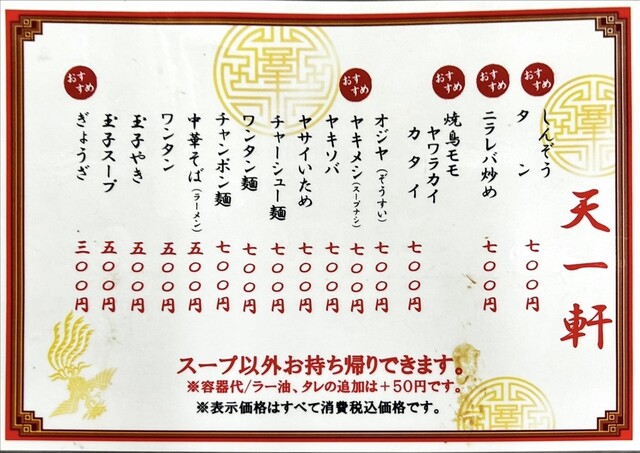 天一軒
おすすめ
しんぞう
タン
七〇〇円
おすすめ
ニラレバ炒め
七〇〇円
おすすめ
焼鳥モモ
ヤワラカイ
カタイ
七〇〇円
オジヤ（ぞうすい）
七〇〇円
おすすめ
ヤキメシ（スープナシ）
七〇〇円
ヤキソバ
七〇〇円
ヤサイいため
七〇〇円
チャーシュー麺
七〇〇円
ワンタン麺
七〇〇円
チャンポン麺
七〇〇円
中華そば（ラーメン）
五〇〇円
ワンタン
五〇〇円
玉子やき
五〇〇円
玉子スープ
五〇〇円
おすすめ
ぎょうざ
三〇〇円
スープ以外お持ち帰りできます。
※容器代/ラー油、タレの追加は＋50円です。
※表示価格はすべて消費税込価格です。